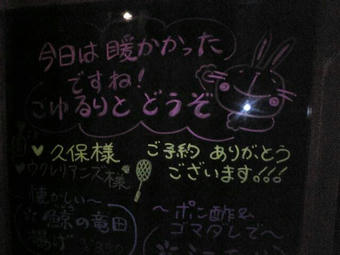 今日は暖かかった
ですね!
ごゆるりと どうぞ
♥久保様
♥ウクレリアンズ様
ご予約 ありがとう
ございます!!!
〜懐かしい〜
鯨の竜田
揚げ
〜ポン酢&
ゴマダレで〜